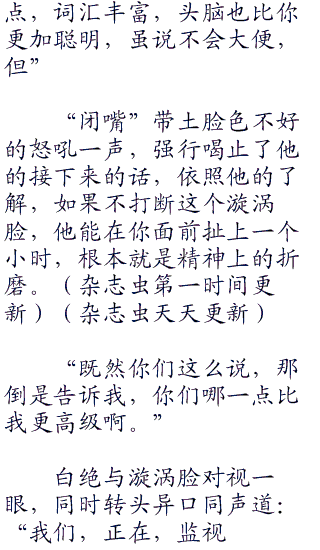 点，词汇丰富，头脑也比你
更加聪明，虽说不会大便，
但”
“闭嘴”带土脸色不好
的怒吼一声，强行喝止了他
的接下来的话，依照他的了
解，如果不打断这个漩涡
脸，他能在你面前扯上一个
小时，根本就是精神上的折
磨。（杂志虫第一时间更
新）（杂志虫天天更新）
“既然你们这么说，那
倒是告诉我，你们哪一点比
我更高级啊。”
白绝与漩涡脸对视一
眼，同时转头异口同声道：
“我们，正在，监视